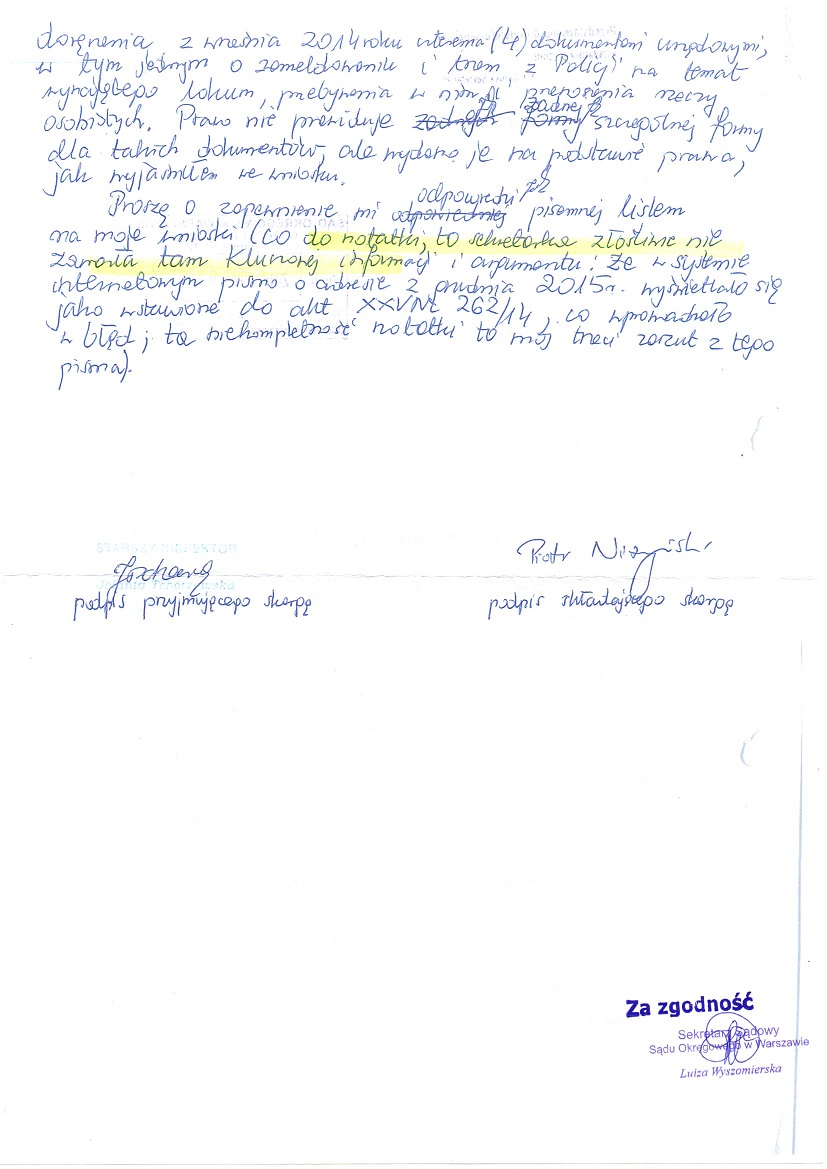 doręczenia z września 2014 roku czterema (4) dokumentami urzędowymi,
w tym jednym o zameldowaniu i trzema z Policji na temat
wynajętego lokum, przebywania w nim, przenoszenia rzeczy
osobistych. Prawo nie przewiduje żadnej szczególnej formy
dla takich dokumentów, ale wydano je na podstawie prawa,
jak wyjaśniłem we wniosku.
Proszę o zapewnienie mi odpowiedzi pisemnej listem
na moje wnioski (co do notatki, to sekretarka złośliwie nie
zawarła tam kluczowej informacji i argumentu: że w systemie
internetowym pismo o adresie z grudnia 2015 r. wyświetlało się
jako wstawione do akt XXVNc 262/14, co wprowadzało
w błąd; ta niekompletność notatki to mój trzeci zarzut z tego
pisma).
STARSZY INSPEKTOR
podpis przyjmującego skargę
Piotr Niżyński
podpis składającego skargę
Za zgodność
Sekretarz Sądowy
Sądu Okręgowego w Warszawie
Luiza Wyszomierska